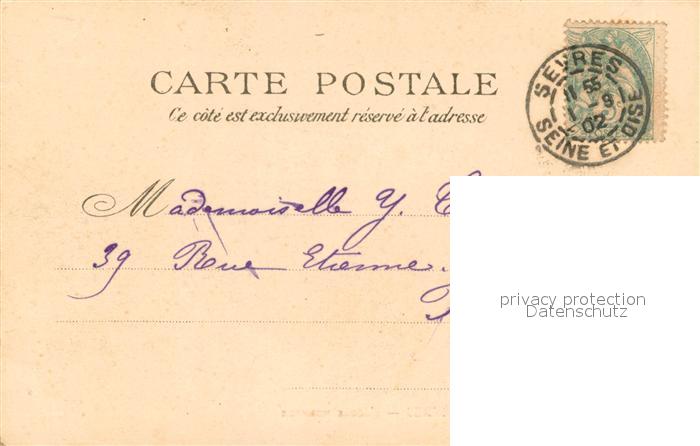 CARTE POSTALE
Ce côté est exclusivement réservé à l'adresse
SEVRES
8
9
02
SEINE ET OISE
Mademoiselle Y.
39 Rue Etienne
privacy protection
Datenschutz